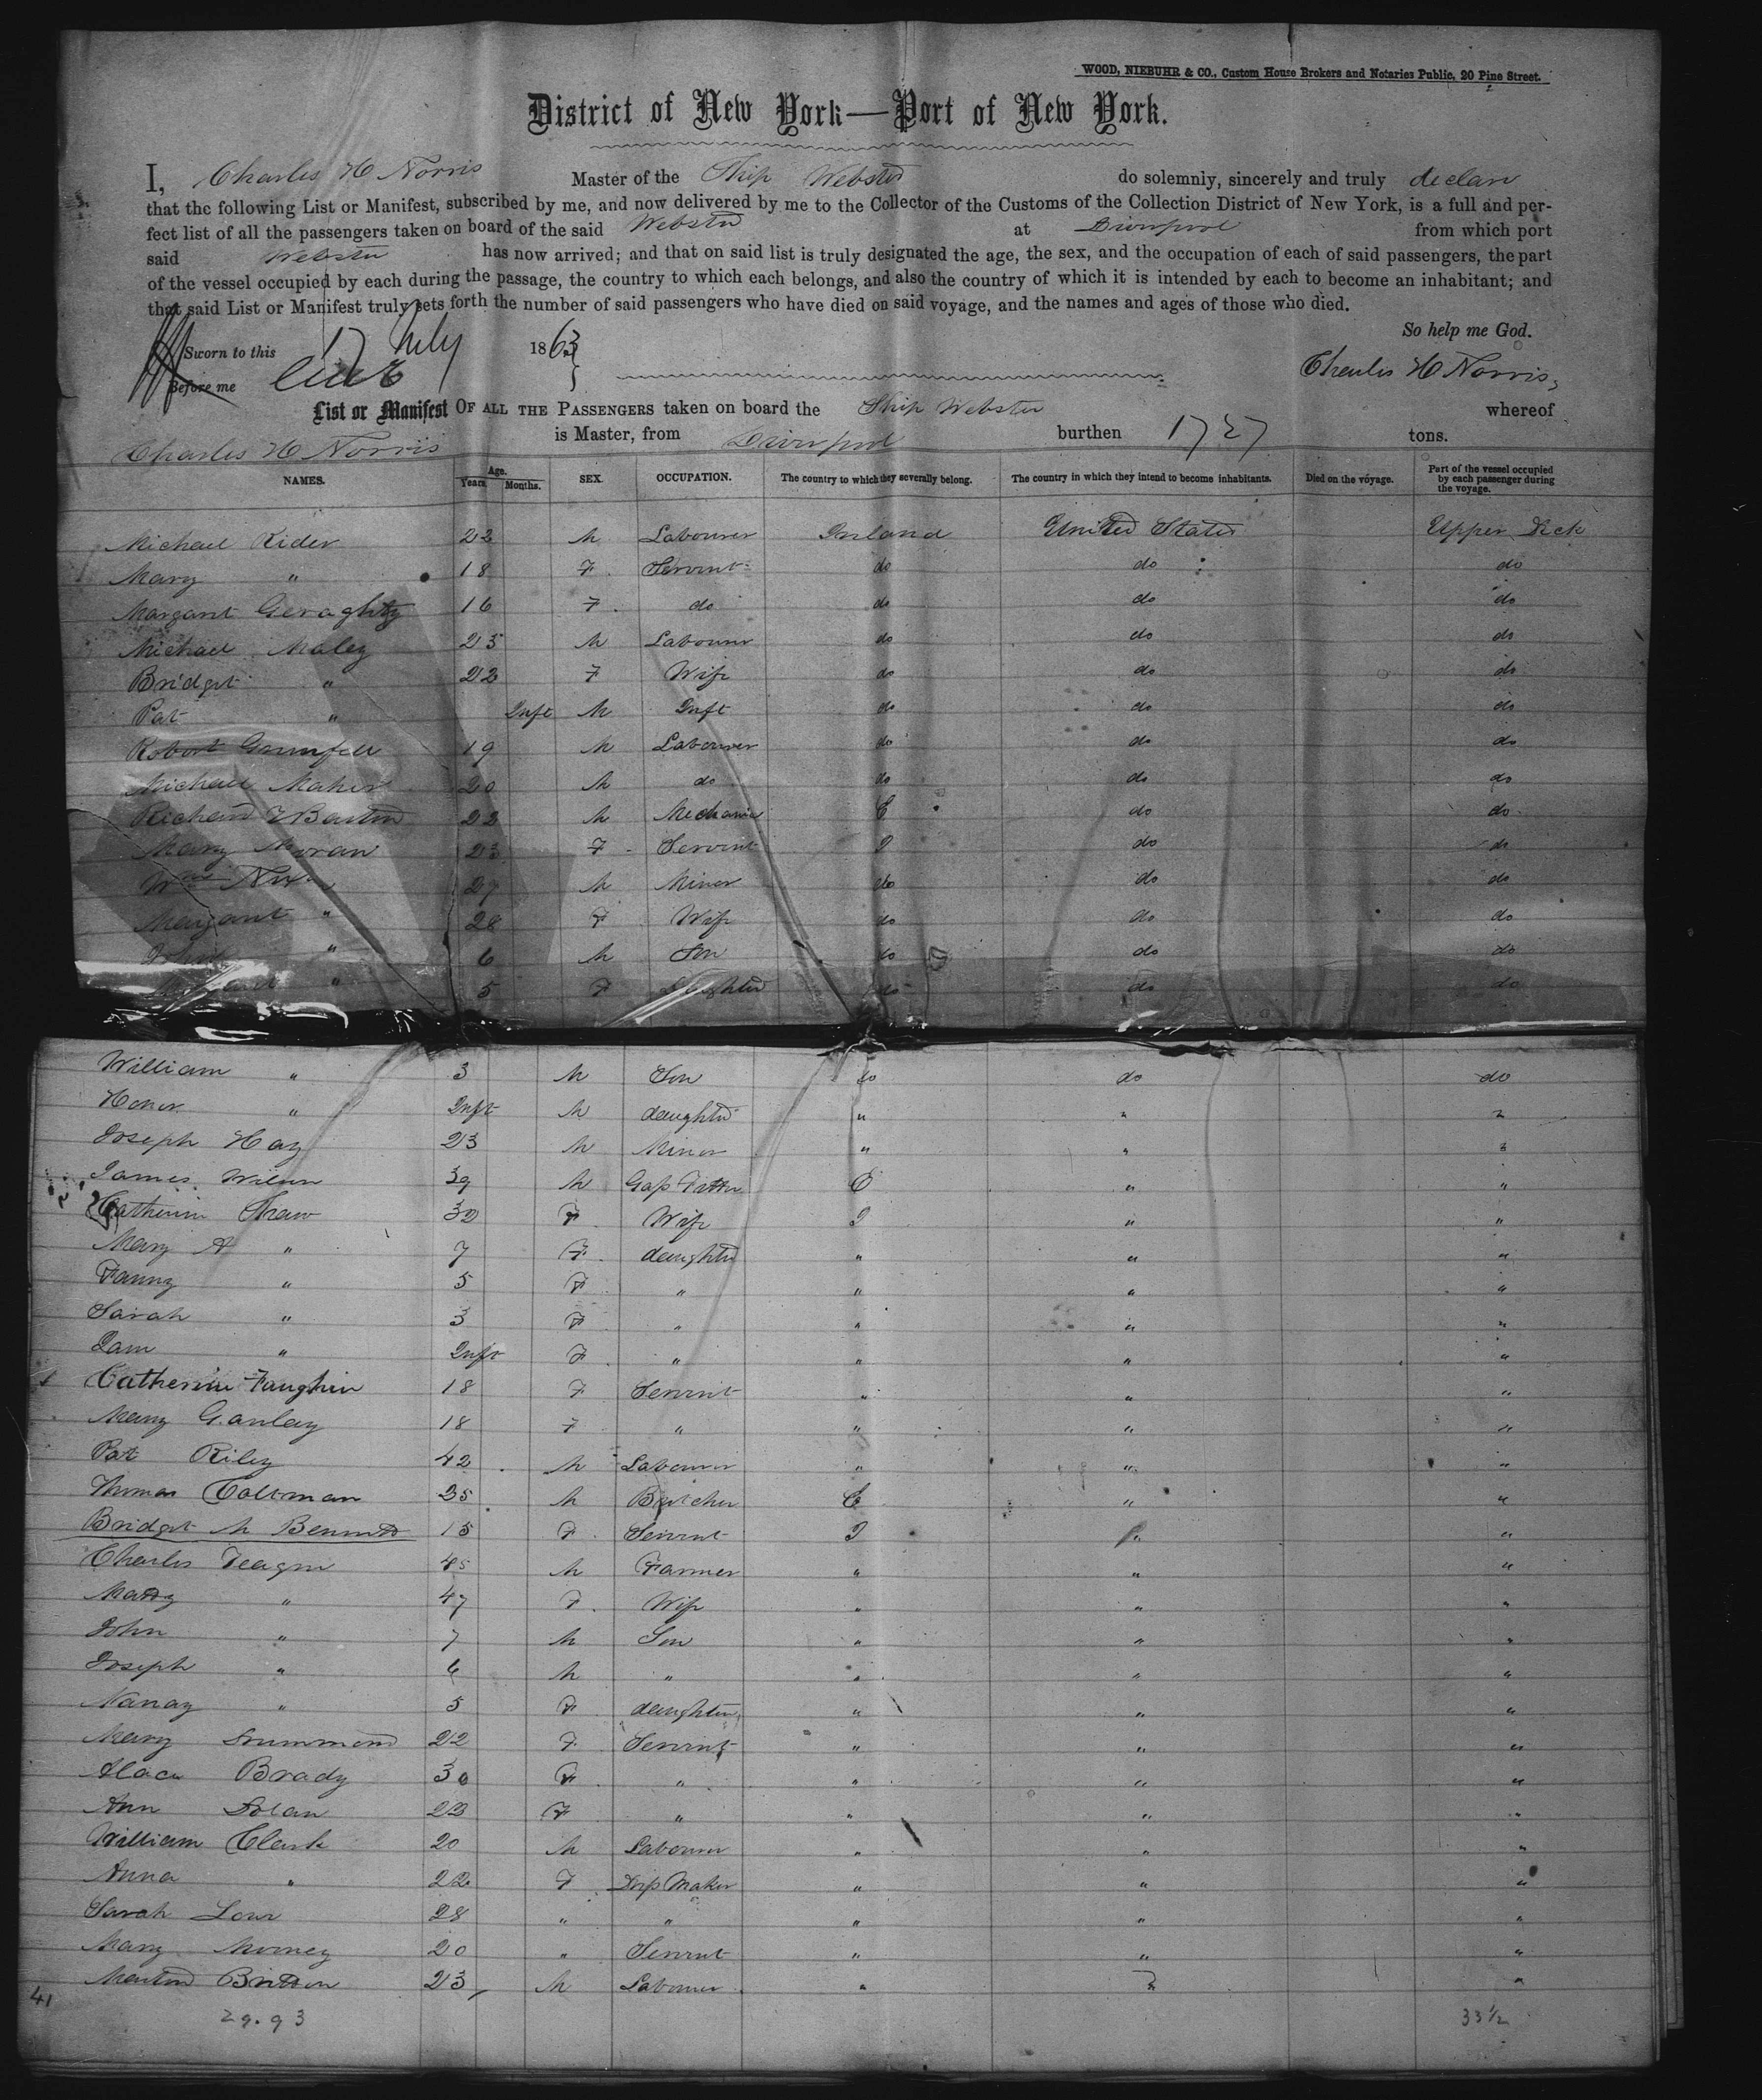 WOOD, NIEBUHR & CO., Custom House Brokers and Notaries Public, 20 Pine Street.
District of New York—Port of New York.
I, Charles H Norris Master of the Ship Webster do solemnly, sincerely and truly declare
that the following List or Manifest, subscribed by me, and now delivered by me to the Collector of the Customs of the Collection District of New York, is a full and per-
fect list of all the passengers taken on board of the said Webster at Liverpool from which port
said Webster has now arrived; and that on said list is truly designated the age, the sex, and the occupation of each of said passengers, the part
of the vessel occupied by each during the passage, the country to which each belongs, and also the country of which it is intended by each to become an inhabitant; and
that said List or Manifest truly sets forth the number of said passengers who have died on said voyage, and the names and ages of those who died.
So help me God.
Sworn to this 17 July 1863
Before me
Charles H Norris
List or Manifest OF ALL THE PASSENGERS taken on board the Ship Webster whereof
Charles H Norris is Master, from Liverpool burthen 1727 tons.
NAMES. Age. Years. Months. SEX. OCCUPATION. The country to which they severally belong. The country in which they intend to become inhabitants. Died on the voyage. Part of the vessel occupied by each passenger during the voyage.
Michael Rider 22 M Labourer Ireland United States Upper Deck
Mary " 18 F Servent do do do
Margaret Geraghty 16 F do do do do
Michael Maley 25 M Labourer do do do
Bridget " 22 F Wife do do do
Pat " Inft M Inft do do do
Robert 19 M Labourer do do do
Michael Maher 20 M do do do do
Richard 22 M Mechanic E do do
Mary Moran 23 F Servent I do do
Wm 27 M Miner do do do
Margaret " 28 F Wife do do do
" 6 M Son do do do
" 5 F Daughter do do do
William " 3 M Son do do do
Honor " Inft M daughter " " "
Joseph Hay 23 M Miner " " "
James Wilson 39 M Gas Fitter E " "
Catherine Shaw 32 F Wife I " "
Mary A " 7 F daughter " " "
Fanny " 5 F " " " "
Sarah " 3 F " " " "
Jane " Inft F " " " "
Catherine Faughin 18 F Servent " " "
Mary Ganley 18 F " " " "
Pat Riley 42 M Labourer " " "
Thomas Coltman 35 M Butcher E " "
Bridget M Bennett 15 F Servent I " "
Charles Teague 45 M Farmer " " "
Matty " 47 F Wife " " "
John " 7 M Son " " "
Joseph " 6 M " " " "
Nanay " 5 F daughter " " "
Mary Drummond 22 F Servent " " "
Alace Brady 30 F " " " "
Ann Dolan 22 F " " " "
William Clark 20 M Labourer " " "
Anna " 22 F Drss Maker " " "
Sarah Low 28 " " " " "
Mary Mooney 20 " Servent " " "
Martin Britton 23 M Labourer " " "
41
29.93
33½